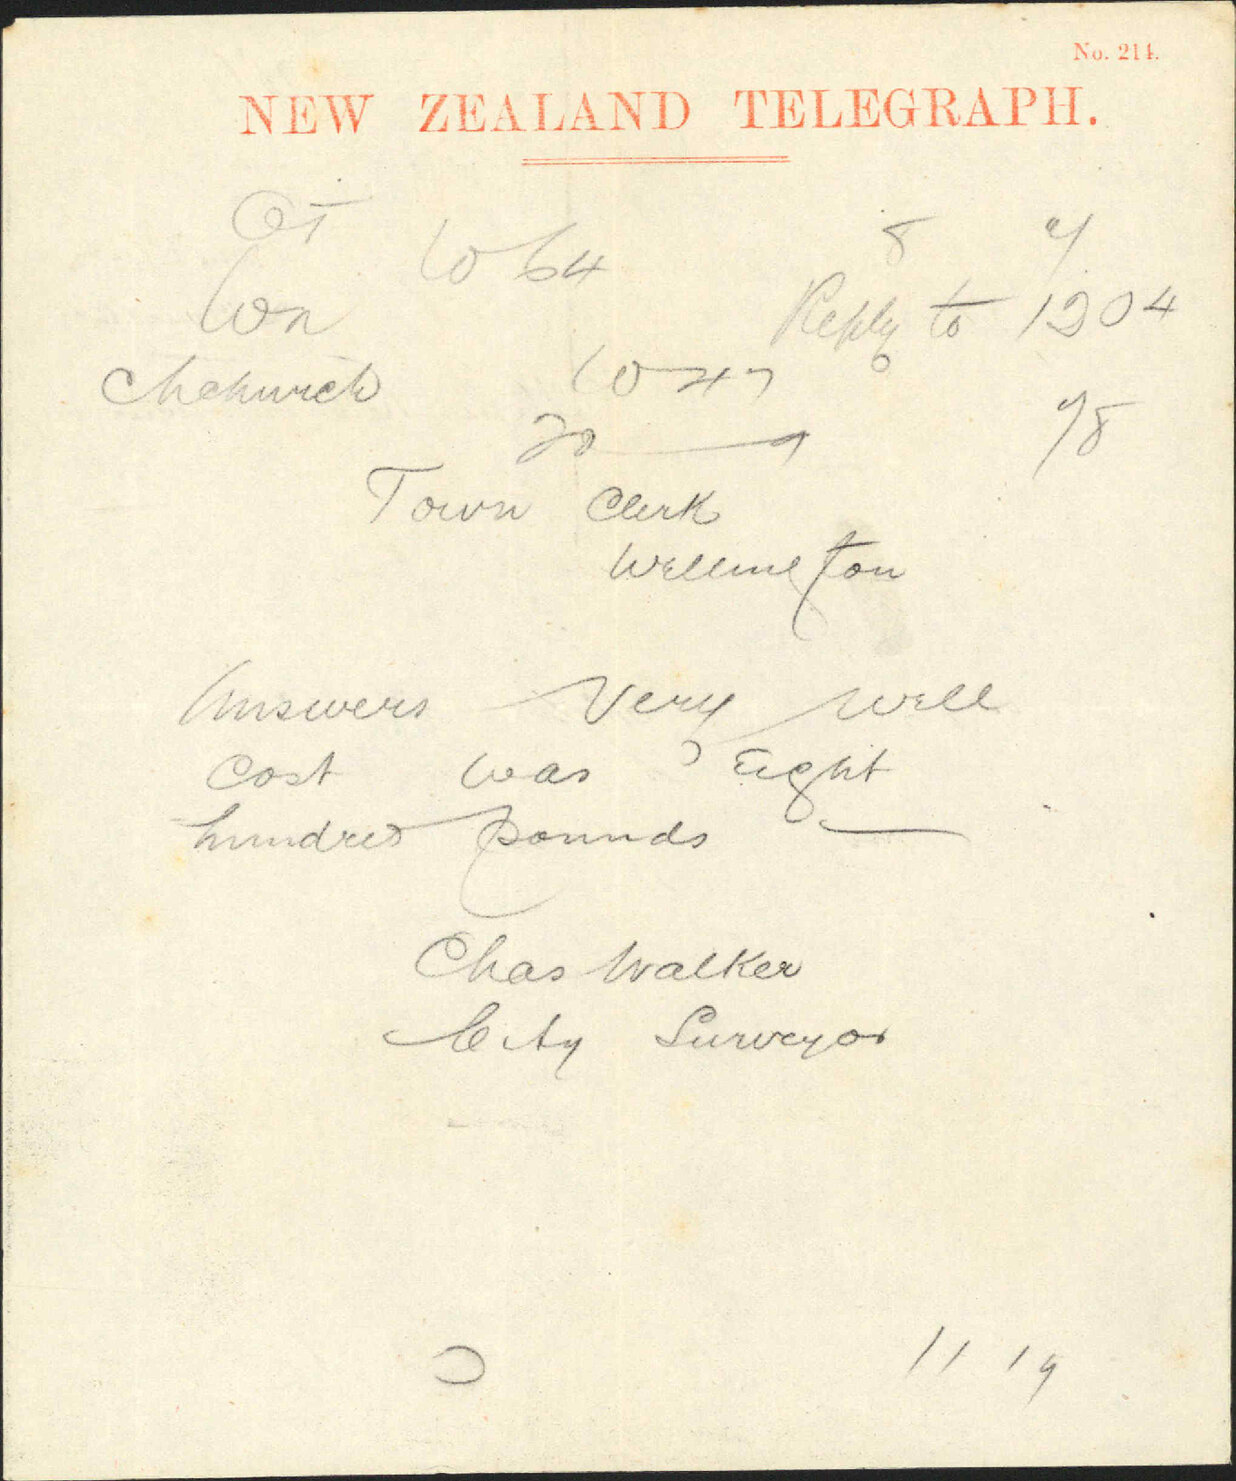 No. 214.
NEW ZEALAND TELEGRAPH.
8
Wn
Reply to 1204
10 47
20
7/8
Town Clerk
Wellington
Answers very well
cost was Eight
hundred pounds
Chas Walker
City Surveyor
11 19